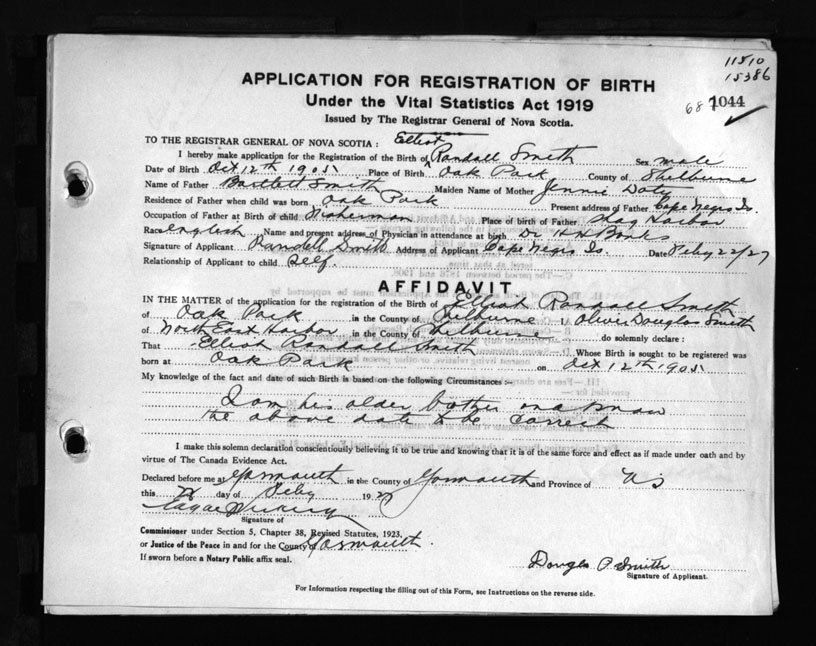 11510
15386
APPLICATION FOR REGISTRATION OF BIRTH
Under the Vital Statistics Act 1919
68 1044
Issued by The Registrar General of Nova Scotia.
TO THE REGISTRAR GENERAL OF NOVA SCOTIA: Elliot
I hereby make application for the Registration of the Birth of Randall Smith Sex male
Date of Birth Oct 12th 1905 Place of Birth Oak Park County of Shelburne
Name of Father Bartlett Smith Maiden Name of Mother Jennie Doty
Residence of Father when child was born Oak Park Present address of Father Cape Negro Is.
Occupation of Father at Birth of child Fisherman Place of birth of Father Shag Harbor
Race english Name and present address of Physician in attendance at birth Dr H H Banks
Signature of Applicant Randall Smith Address of Applicant Cape Negro Is. Date Feby 22/27
Relationship of Applicant to child Self.
AFFIDAVIT
IN THE MATTER of the application for the registration of the Birth of Elliot Randall Smith
of Oak Park in the County of Shelburne I Oliver Douglas Smith
of North East Harbor in the County of Shelburne do solemnly declare:
That Elliot Randall Smith Whose Birth is sought to be registered was
born at Oak Park on Oct 12th 1905
My knowledge of the fact and date of such Birth is based on the following Circumstances :—
I am his older brother and know
the above date to be correct
I make this solemn declaration conscientiously believing it to be true and knowing that it is of the same force and effect as if made under oath and by
virtue of The Canada Evidence Act.
Declared before me at Yarmouth in the County of Yarmouth and Province of NS
this 22 day of Feby 1927
Signature of
Commissioner under Section 5, Chapter 38, Revised Statutes, 1923,
or Justice of the Peace in and for the County of Yarmouth.
If sworn before a Notary Public affix seal.
Douglas O Smith
Signature of Applicant.
For Information respecting the filling out of this Form, see Instructions on the reverse side.